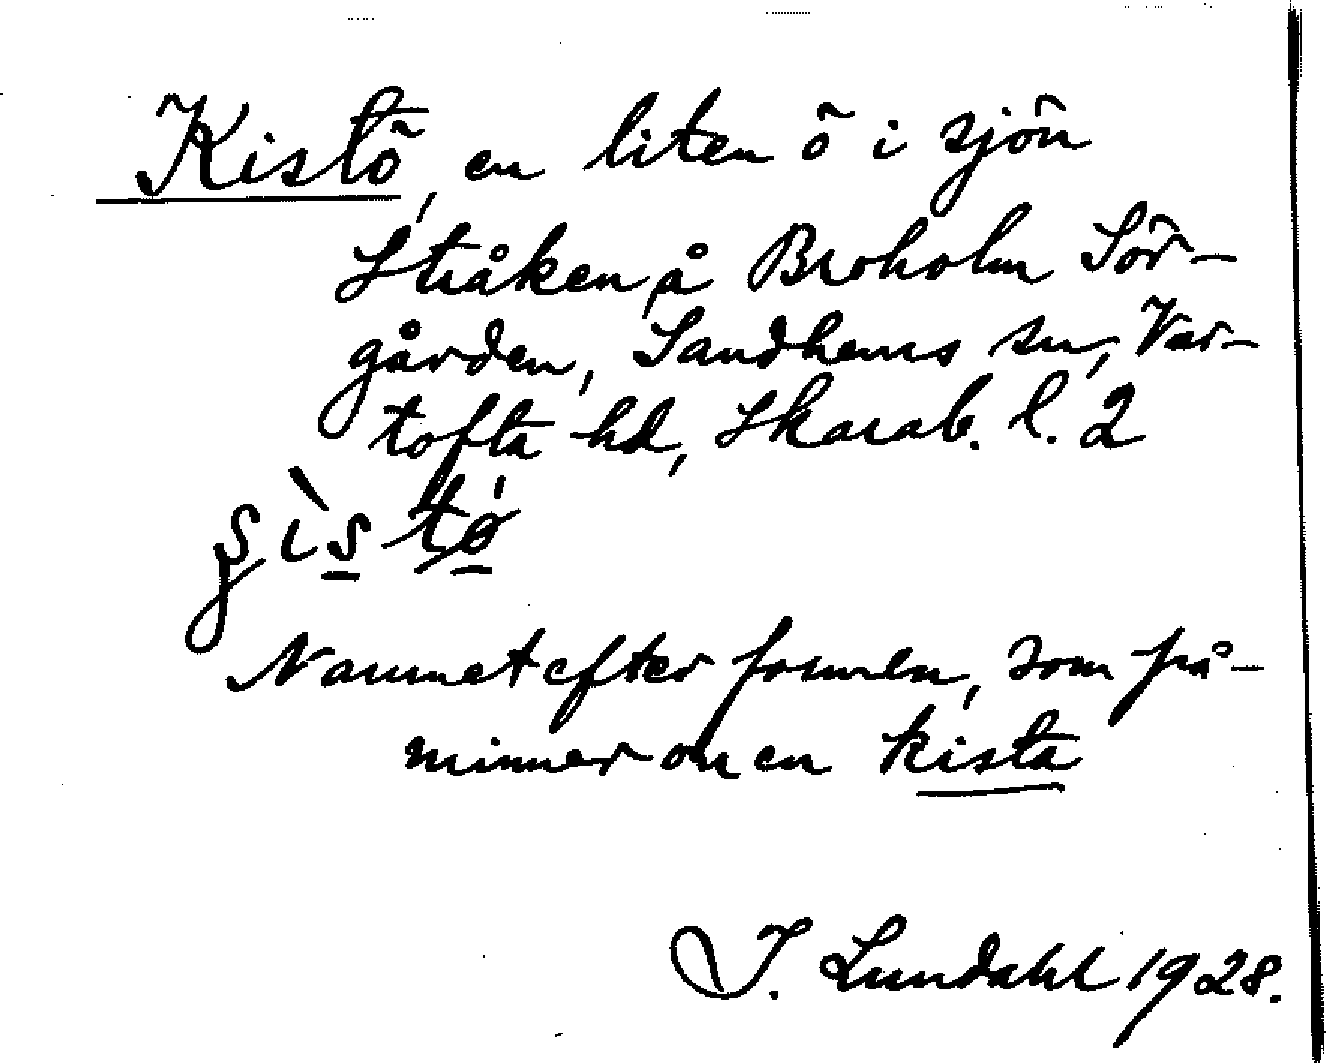 Kistö, en liten ö i sjön
Stråken, å Broholm Sör-
gården, Sandhems sn, Var-
tofta hd, Skarab. l. 2
Namnet efter formen, som på-
minner om en kista
I. Lundahl 1928.